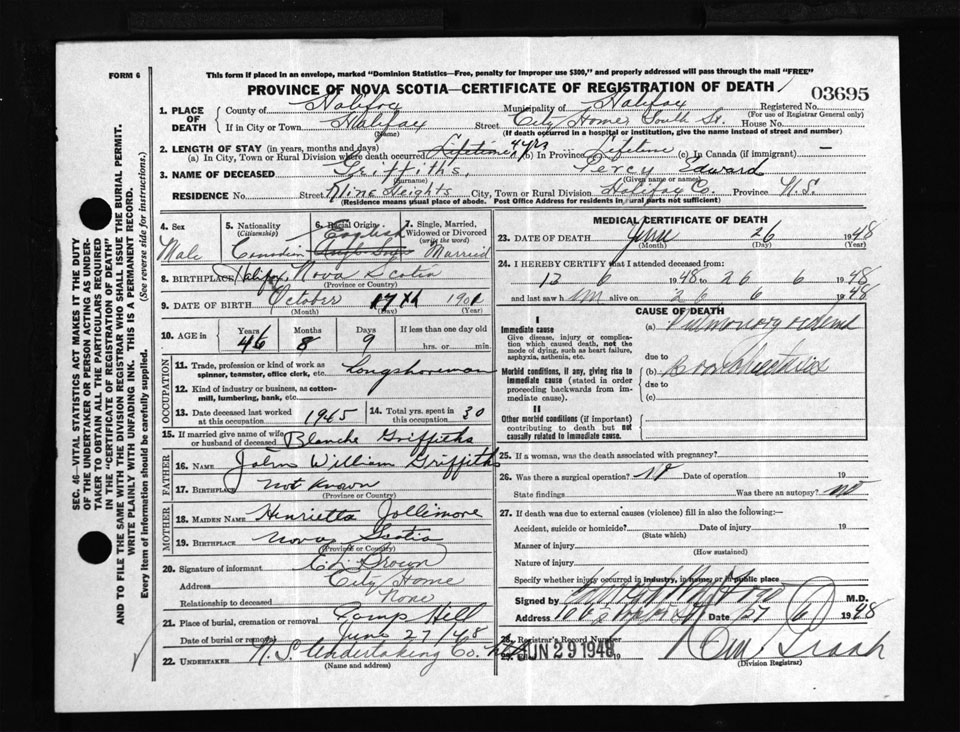 FORM 6
This form if placed in an envelope, marked "Dominion Statistics—Free, penalty for improper use $300," and properly addressed will pass through the mail "FREE"
PROVINCE OF NOVA SCOTIA—CERTIFICATE OF REGISTRATION OF DEATH
03695
1. PLACE OF DEATH
County of Halifax Municipality of Halifax Registered No.
(For use of Registrar General only)
If in City or Town Halifax Street City Home South St. House No.
(Name) (If death occurred in a hospital or institution, give the name instead of street and number)
2. LENGTH OF STAY (in years, months and days)
(a) In City, Town or Rural Division where death occurred Lifetime 4 yrs (b) In Province Lifetime (c) In Canada (if immigrant) —
3. NAME OF DECEASED Griffiths, Percy Edward
(Surname) (Given name or names)
RESIDENCE No. Street Kline Heights City, Town or Rural Division Halifax Co. Province N.S.
(Residence means usual place of abode. Post Office Address for residents in rural parts not sufficient)
4. Sex
Male
5. Nationality
(Citizenship)
Canadian
6. Racial Origin
English
7. Single, Married, Widowed or Divorced
(write the word)
Married
8. BIRTHPLACE Halifax, Nova Scotia
(Province or Country)
9. DATE OF BIRTH October 17th 1901
(Month) (Day) (Year)
10. AGE in Years Months Days If less than one day old
46 8 9 hrs. or min.
OCCUPATION
11. Trade, profession or kind of work as spinner, teamster, office clerk, etc. Longshoreman
12. Kind of industry or business, as cotton-mill, lumbering, bank, etc.
13. Date deceased last worked at this occupation 1945 14. Total yrs. spent in this occupation 30
15. If married give name of wife or husband of deceased Blanche Griffiths
FATHER
16. NAME John William Griffiths
17. BIRTHPLACE Not Known
(Province or Country)
MOTHER
18. MAIDEN NAME Henrietta Jollimore
19. BIRTHPLACE Nova Scotia
(Province or Country)
20. Signature of informant Ed. Brown
Address City Home
Relationship to deceased None
21. Place of burial, cremation or removal Camp Hill
Date of burial or removal June 27/48
22. UNDERTAKER N.S. Undertaking Co. Ltd
(Name and address)
MEDICAL CERTIFICATE OF DEATH
23. DATE OF DEATH June 26 1948
(Month) (Day) (Year)
24. I HEREBY CERTIFY that I attended deceased from:
13 6 1948 to 26 6 1948
and last saw him alive on 26 6 1948
CAUSE OF DEATH
I
Immediate cause
Give disease, injury or complication which caused death, not the mode of dying, such as heart failure, asphyxia, asthenia, etc.
(a) Pulmonary edema
due to
Morbid conditions, if any, giving rise to immediate cause (stated in order proceeding backwards from immediate cause).
(b)
due to
(c)
II
Other morbid conditions (if important) contributing to death but not causally related to immediate cause.
25. If a woman, was the death associated with pregnancy?
26. Was there a surgical operation? no Date of operation 19
State findings Was there an autopsy? no
27. If death was due to external causes (violence) fill in also the following:—
Accident, suicide or homicide? Date of injury 19
(State which)
Manner of injury
(How sustained)
Nature of injury
Specify whether injury occurred in industry, in home, or in public place
Signed by M.D.
Address Date 27 6 1948
28. Registrar's Record Number
29. JUN 29 1948 19
(Division Registrar)
SEC. 46—VITAL STATISTICS ACT MAKES IT THE DUTY OF THE UNDERTAKER OR PERSON ACTING AS UNDERTAKER TO OBTAIN ALL THE PARTICULARS REQUIRED IN THE "CERTIFICATE OF REGISTRATION OF DEATH" AND TO FILE THE SAME WITH THE DIVISION REGISTRAR WHO SHALL ISSUE THE BURIAL PERMIT.
WRITE PLAINLY WITH UNFADING INK. THIS IS A PERMANENT RECORD.
Every item of information should be carefully supplied. (See reverse side for instructions.)